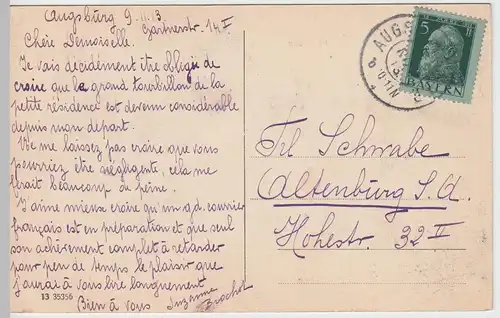 Augsburg 9.11.13.
Gartnerstr. 14 I
Chère Demoiselle.
Je vais décidément être obligée de
croire que le grand tourbillon de la
petite résidence est devenu considérable
depuis mon départ.
Ne me laissez pas croire que vous
pourriez être négligente, cela me
ferait beaucoup de peine.
J'aime mieux croire qu'un gd. courrier
français est en préparation et que seul
son achèvement complet à retarder
pour peu de temps le plaisir que
j'aurai à vous lire longuement
Bien à vous Suzanne
Brochot
13 35356
AUGSB
5 Pf
BAYERN
Frl Schwabe
Altenburg S. A.
Hohestr. 32 II